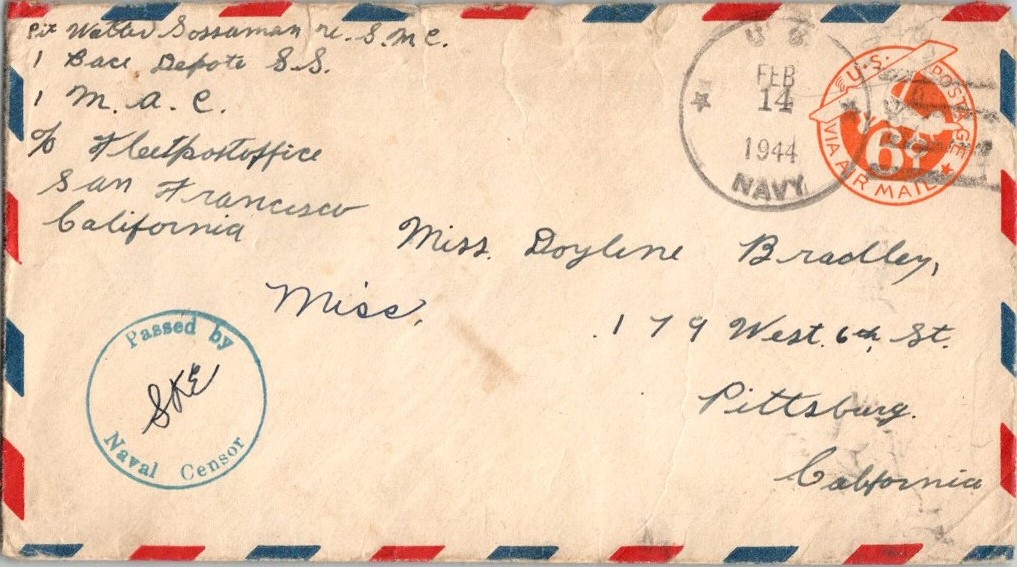 Pvt Walter Sossaman U.S.M.C.
1 Bace Depote S.S.
1 M.A.C.
c/o Fleetpostoffice
San Francisco
California
U S
FEB
14
1944
NAVY
U.S. POSTAGE
6¢
VIA AIR MAIL
Miss. Doylene Bradley,
Misc.
179 West. 6th, St.
Pittsburg.
California
Passed by
SKE
Naval Censor